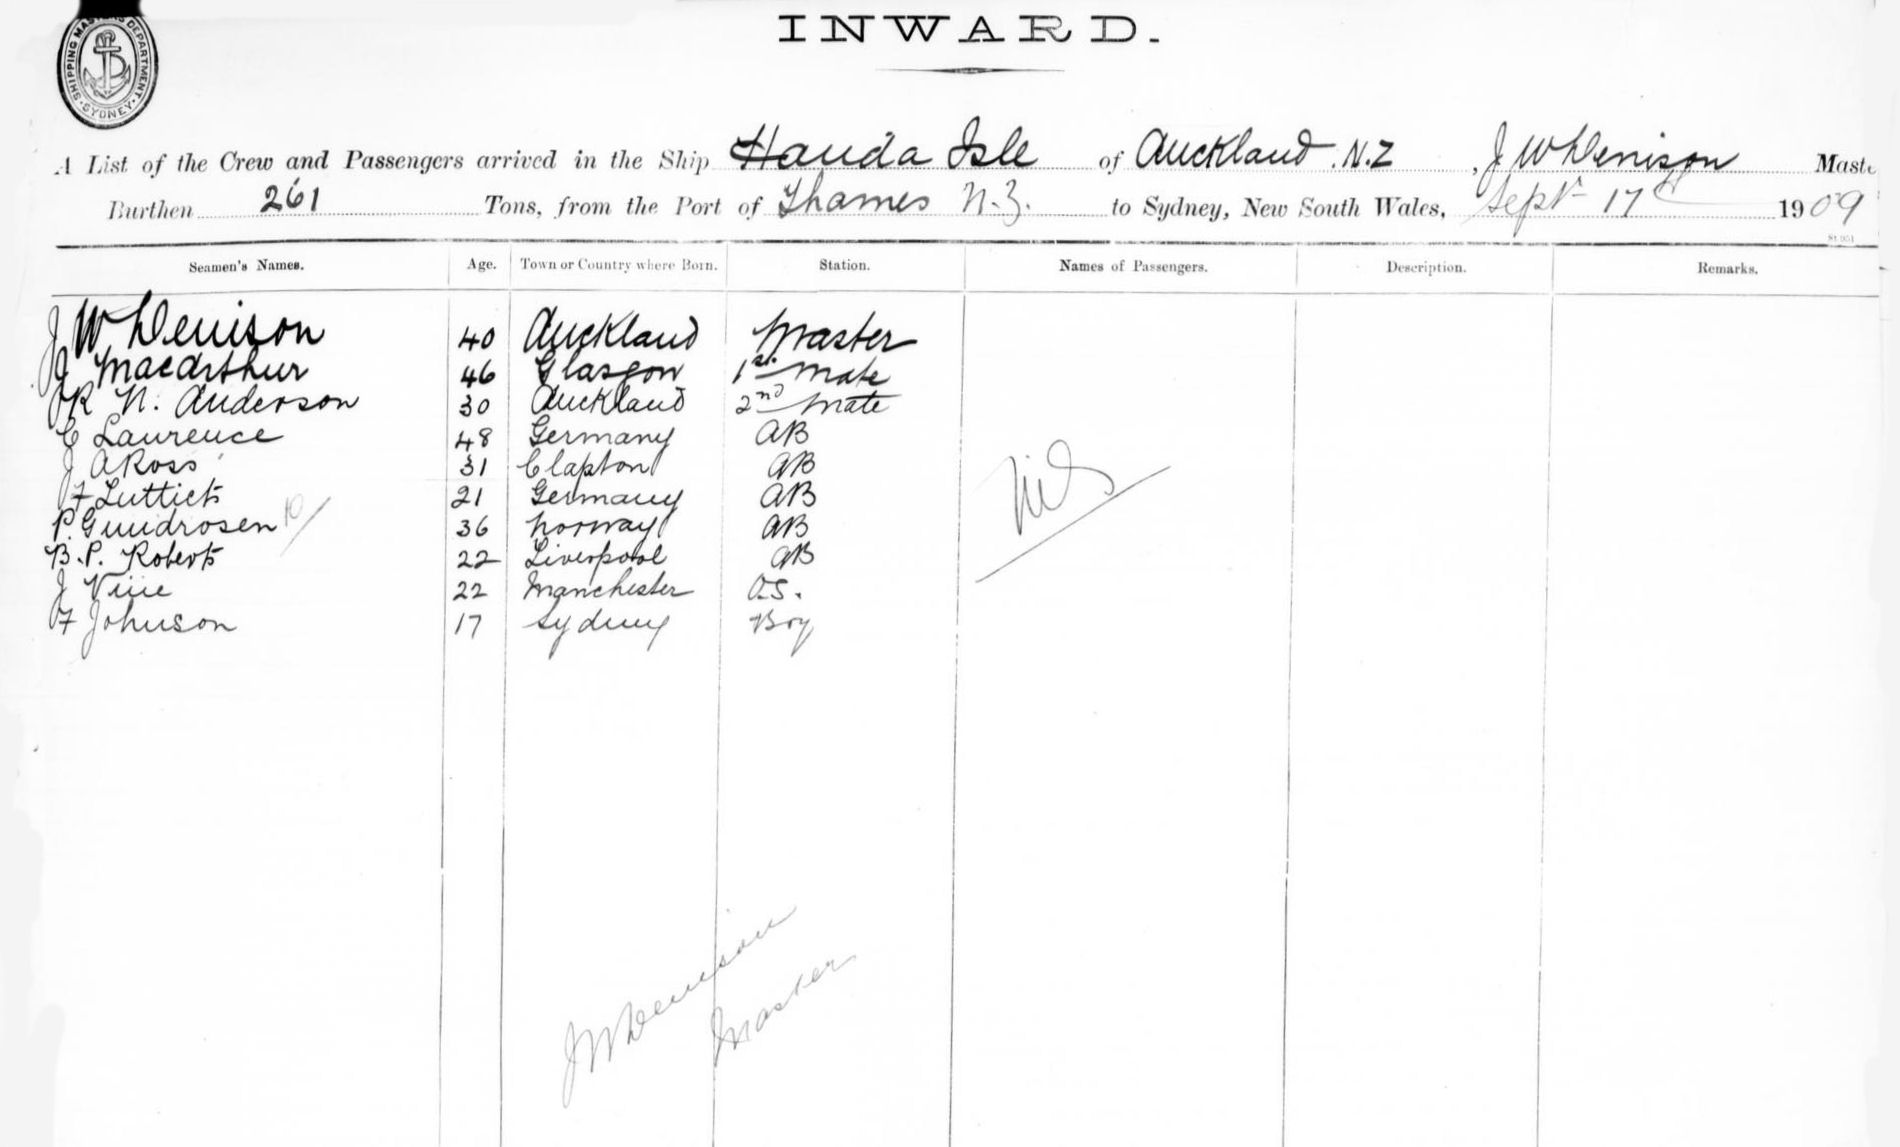 SHIPPING MASTERS DEPARTMENT. SYDNEY.
INWARD.
A List of the Crew and Passengers arrived in the Ship Handa Isle of Auckland. N.Z, J W Denison Maste
Burthen 261 Tons, from the Port of Thames N.Z. to Sydney, New South Wales, Sept 17th 1909
Seamen's Names. Age. Town or Country where Born. Station. Names of Passengers. Description. Remarks.
J W Denison 40 Auckland Master
J Macarthur 46 Glasgow 1st Mate
N. Anderson 30 Auckland 2nd Mate
C Laurence 48 Germany AB
J A Ross 31 Clapton AB
F Luttich 21 Germany AB
P. Gundrosen 10/ 36 Norway AB
B. P. Roberts 22 Liverpool AB
J Vine 22 Manchester O.S.
F Johnson 17 Sydney Boy
Nil
J W Denison
Master